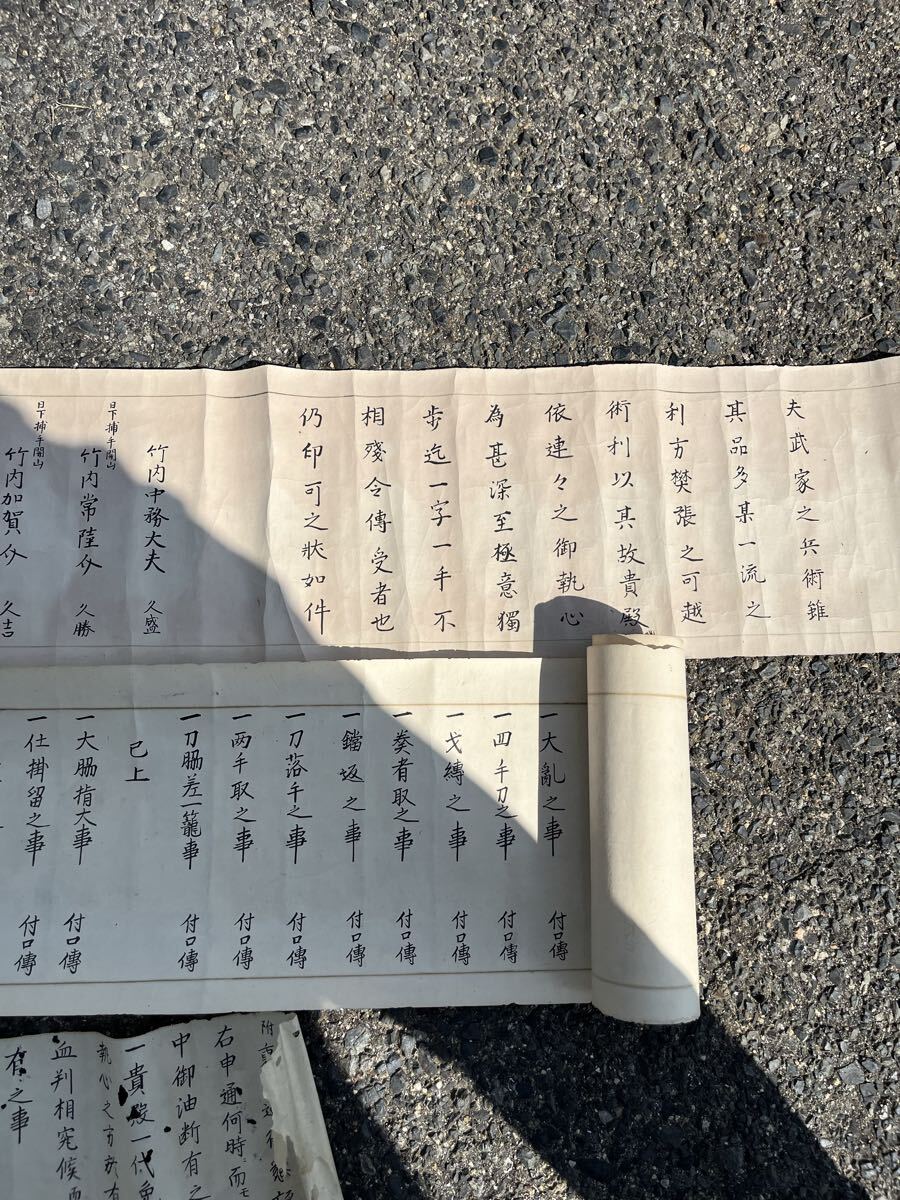 夫武家之兵術雖
其品多某一流之
利方樊張之可越
術利以其故貴殿
依連々之御執心
為甚深至極意獨
歩迄一字一手不
相殘令傳受者也
仍印可之狀如件
竹内中務大夫 久盛
日下捕手開山
竹内常陸介 久勝
日下捕手開山
竹内加賀介 久吉
一大亂之事 付口傳
一四手刀之事 付口傳
一戈縛之事 付口傳
一奏者取之事 付口傳
一鐺返之事 付口傳
一刀落手之事 付口傳
一両手取之事 付口傳
一刀脇差一籠事 付口傳
已上
一大脇指大事 付口傳
一仕掛留之事 付口傳
右申通何時而モ
中御油断有之
一貴殿一代免
執心之方於有
血判相究候
有之事